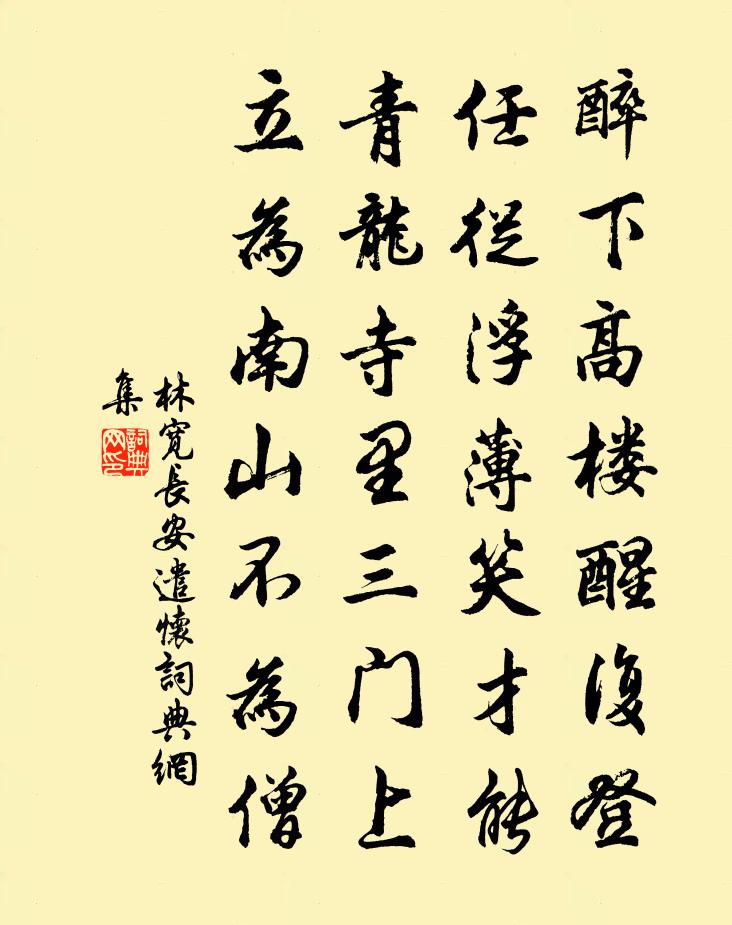 醉下高楼醒復登
任從浮薄笑才能
青龍寺里三门上
立為南山不為僧
林寬長安遣懷詞典網
集
詞典
网印